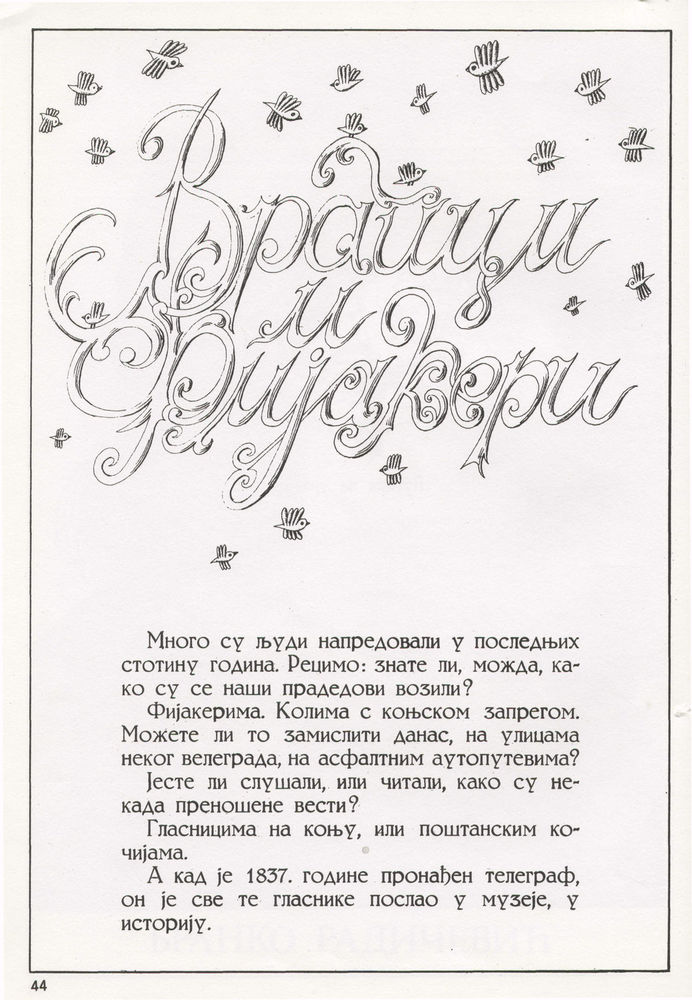 Врапци
и
Фијакери
Много су људи напредовали у последњих
стотину година. Рецимо: знате ли, можда, ка-
ко су се наши прадедови возили?
Фијакерима. Колима с коњском запрегом.
Можете ли то замислити данас, на улицама
неког велеграда, на асфалтним аутопутевима?
Јесте ли слушали, или читали, како су не-
када преношене вести?
Гласницима на коњу, или поштанским ко-
чијама.
А кад је 1837. године пронађен телеграф,
он је све те гласнике послао у музеје, у
историју.
44